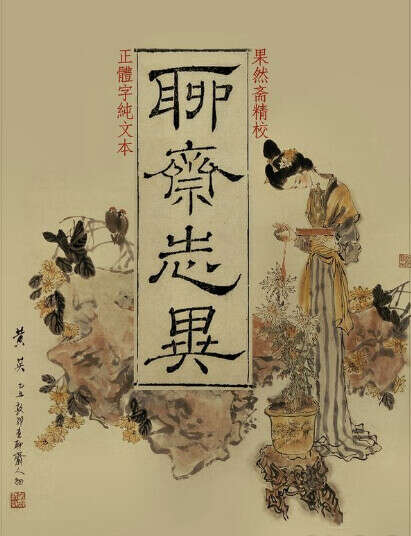 果然斋精校
聊齋志異
正體字純文本
黃英